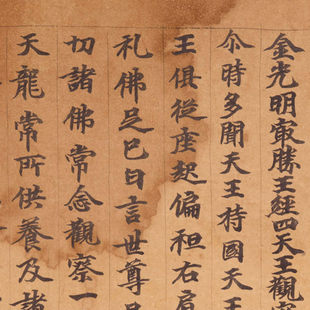 金光明㝡勝王經四天王觀察
尒時多聞天王持國天王
王俱從座起偏袒右肩
礼佛足已白言世尊是
切諸佛常念觀察一
天龍常所供養及諸